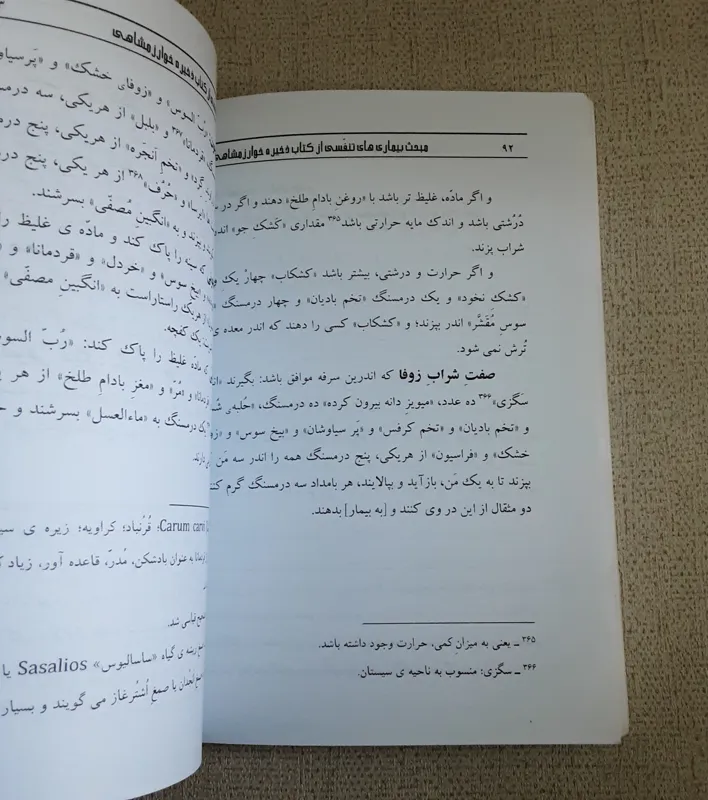 ۹۲ مبحث بیماری های تنفّسی از کتاب ذخیره خوارزمشاهی
و اگر مادّه، غلیظ تر باشد با «روغن بادام طلخ» دهند و اگر در
دُرُشتی باشد و اندک مایه حرارتی باشد۳۶۵ مقداری «کَشکِ جو» اندر
شراب پزند.
و اگر حرارت و درشتی، بیشتر باشد «کشکاب» چهارْ یک
«کشک نخود» و یک درمسنگ «تخم بادیان» و چهار درمسنگ
سوسِ مُقَشَّر» اندر بپزند؛ و «کشکاب» کسی را دهند که اندر معده ی
تُرش نمی شود.
صفت شرابِ زوفا که اندرین سرفه موافق باشد: بگیرند
سَگزی»۳۶۶ ده عدد، «میویزِ دانه بیرون کرده» ده درمسنگ، «حُلبه
و «تخم بادیان» و «تخم کرفس» و «پَر سیاوشان» و «بیخ سوس» و
خشک» و «فراسیون» از هریکی، پنج درمسنگ همه را اندر سه مَن
بپزند تا به یک مَن، بازآید و بپالایند، هر بامداد سه درمسنگ گرم کنند
دو مثقال از این در وی کنند و [به بیمار] بدهند.
۳۶۵ ـ یعنی به میزانِ کمی، حرارت وجود داشته باشد.
۳۶۶ ـ سگزی: منسوب به ناحیه ی سیستان.
کتاب ذخیره خوارزمشاهی
رُبّ السوس» و «زوفای خشک» و
«قردمانا»۳۶۷ و «بلبل» از هریکی، سه
گِرد» و «تخمِ اَنجَره» از هریکی، پنج
ایرسا» و «حُرْف»۳۶۸ از هر یکی، پنج
و به «انگبینِ مُصفّی» بسرشند.
سینه را پاک کند و مادّه ی غلیظ را
بیخ سوس» و «خردل» و «قردمانا» و
از هریک راستاراست به «انگبینِ مصفّی»
یک کفچه.
مادّه غلیظ را پاک کند: «رُبّ السوس
و «مُرّ» و «مغزِ بادامِ طلخ» از هر
یک درمسنگ به «ماءالعسل» بسرشند و
دارند.
Carum carvi؛ قُرُنباد؛ کراویه؛ زیره ی
به عنوان بادشکن، مُدرّ، قاعده آور، زیاد
قیاسی شد.
ریشه ی گیاه «ساسالیوس» Sasalios یا
یا صمغِ اُشتُرغاز می گویند و بسیار